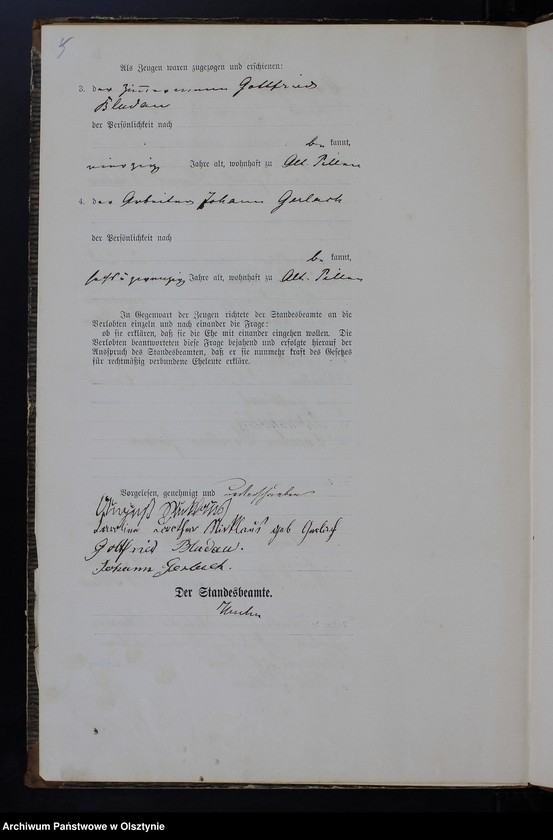 Als Zeugen waren zugezogen und erschienen:
3. der Zimmermann Gottfried
Bludau
der Persönlichkeit nach
be kannt,
vierzig Jahre alt, wohnhaft zu Alt Pillau
4. der Arbeiter Johann Gerlach
der Persönlichkeit nach
be kannt,
Jahre alt, wohnhaft zu Alt. Pillau
In Gegenwart der Zeugen richtete der Standesbeamte an die
Verlobten einzeln und nach einander die Frage:
ob sie erklären, daß sie die Ehe mit einander eingehen wollen. Die
Verlobten beantworteten diese Frage bejahend und erfolgte hierauf der
Ausspruch des Standesbeamten, daß er sie nunmehr kraft des Gesetzes
für rechtmäßig verbundene Eheleute erkläre.
Vorgelesen, genehmigt und unterschrieben
August Nicklaus
Dorothea Nicklaus geb Gerlach
Gottfried Bludau.
Johann Gerlach.
Der Standesbeamte.
Archiwum Państwowe w Olsztynie